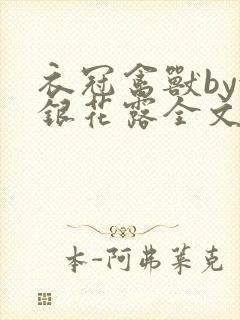 衣冠禽獸by
銀花露全文
本-阿弗莱克